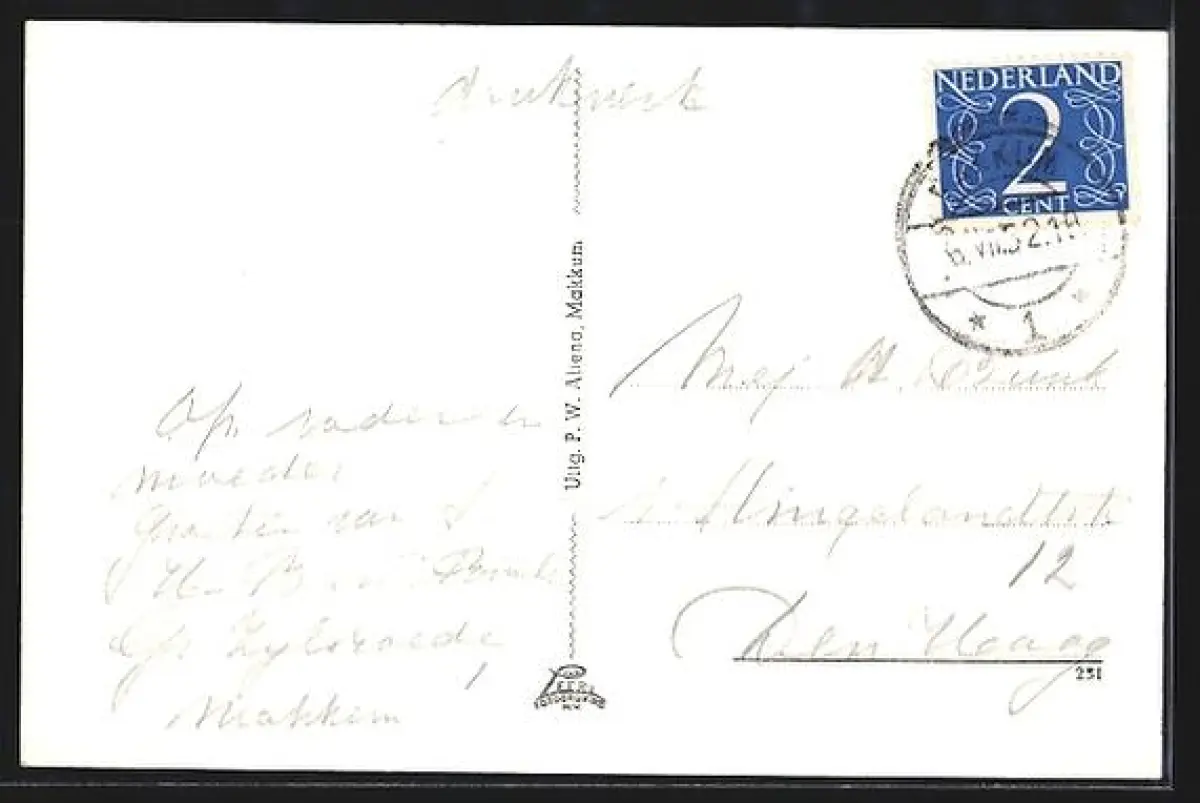 drukwerk
NEDERLAND
2
CENT
6.VII.52.19
1
Uitg. P. W. Altena, Makkum
Mej H. Brunk
Slingelandtstr
12
Den Haag
251
Op. vader en
moeder
Groeten van
H. Brunk
Op. Zylsroede
Makkum